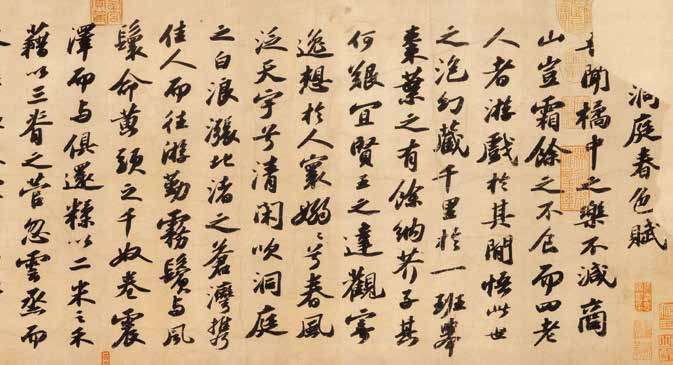 洞庭春色賦
聞橘中之樂不減商
山豈霜餘之不食而四老
人者游戲於其間悟此世
之泡幻藏千里於一班舉
棗葉之有餘納芥子其
何艱宜賢王之達觀寄
逸想於人寰嫋〻兮春風
泛天宇兮清閑吹洞庭
之白浪漲北渚之蒼灣攜
佳人而往游勤霧鬢与風
鬟命黃頭之千奴卷震
澤而与俱還糅以二米之禾
藉以三脊之菅忽雲烝而